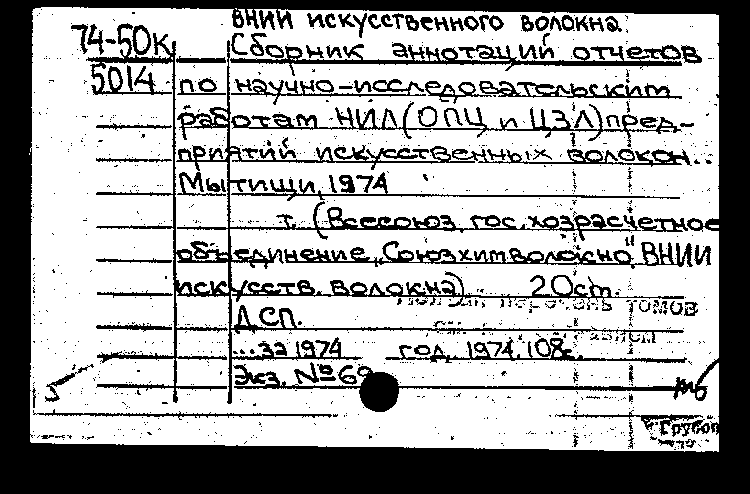 ВНИИ искусственного волокна.
74-50к Сборник аннотаций отчетов
5014 по научно-исследовательским
работам НИЛ (ОПЦ и ЦЗЛ) пред-
приятий искусственных волокон...
Мытищи, 1974
т. (Всесоюз. гос. хозрасчетное
объединение „Союзхимволокно". ВНИИ
искусств. волокна) 20 см.
Полный перечень томов
ДСП.
главном
...за 1974 год. 1974. 108с.
Экз. № 69